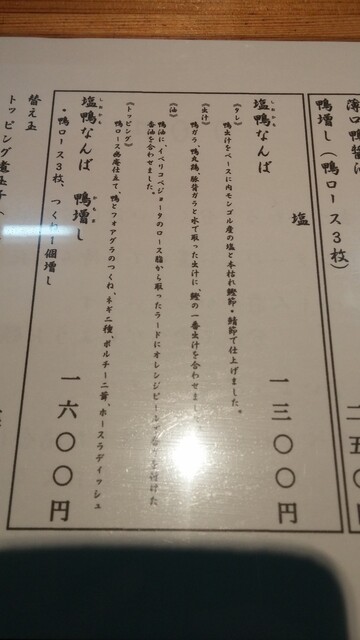 薄口鴨醤油
鴨増し（鴨ロース３枚）
塩
しおかも
塩鴨なんば
一三〇〇円
《タレ》
鴨出汁をベースに内モンゴル産の塩と本枯れ鰹節・鯖節で仕上げました。
《出汁》
鴨ガラ、鴨丸鶏、豚背ガラと水で取った出汁に、鰹の一番出汁を合わせました
《油》
鴨油に、イベリコベジョータのロース脂から取ったラードにオレンジピール
香油を合わせました。
《トッピング》
鴨ロース 仕立て、鴨とフォアグラのつくね、ネギ二種、ポルチーニ茸、ホースラディッシュ
しおかも
塩鴨なんば 鴨増し
一六〇〇円
・鴨ロース３枚、つくね１個増し
替え玉
トッピング煮玉子